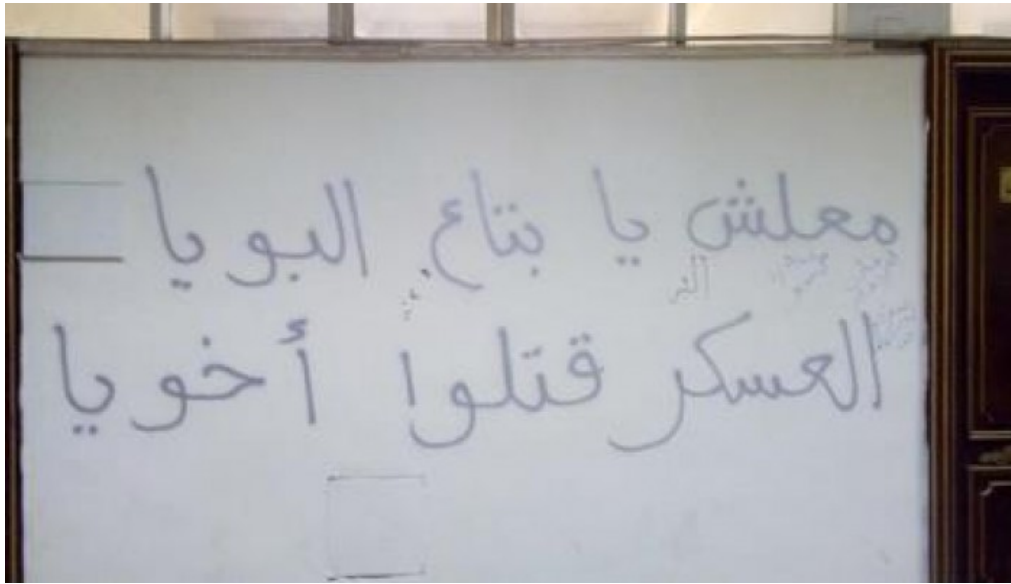 معلش يا بتاع البويا
العسكر قتلوا أخويا